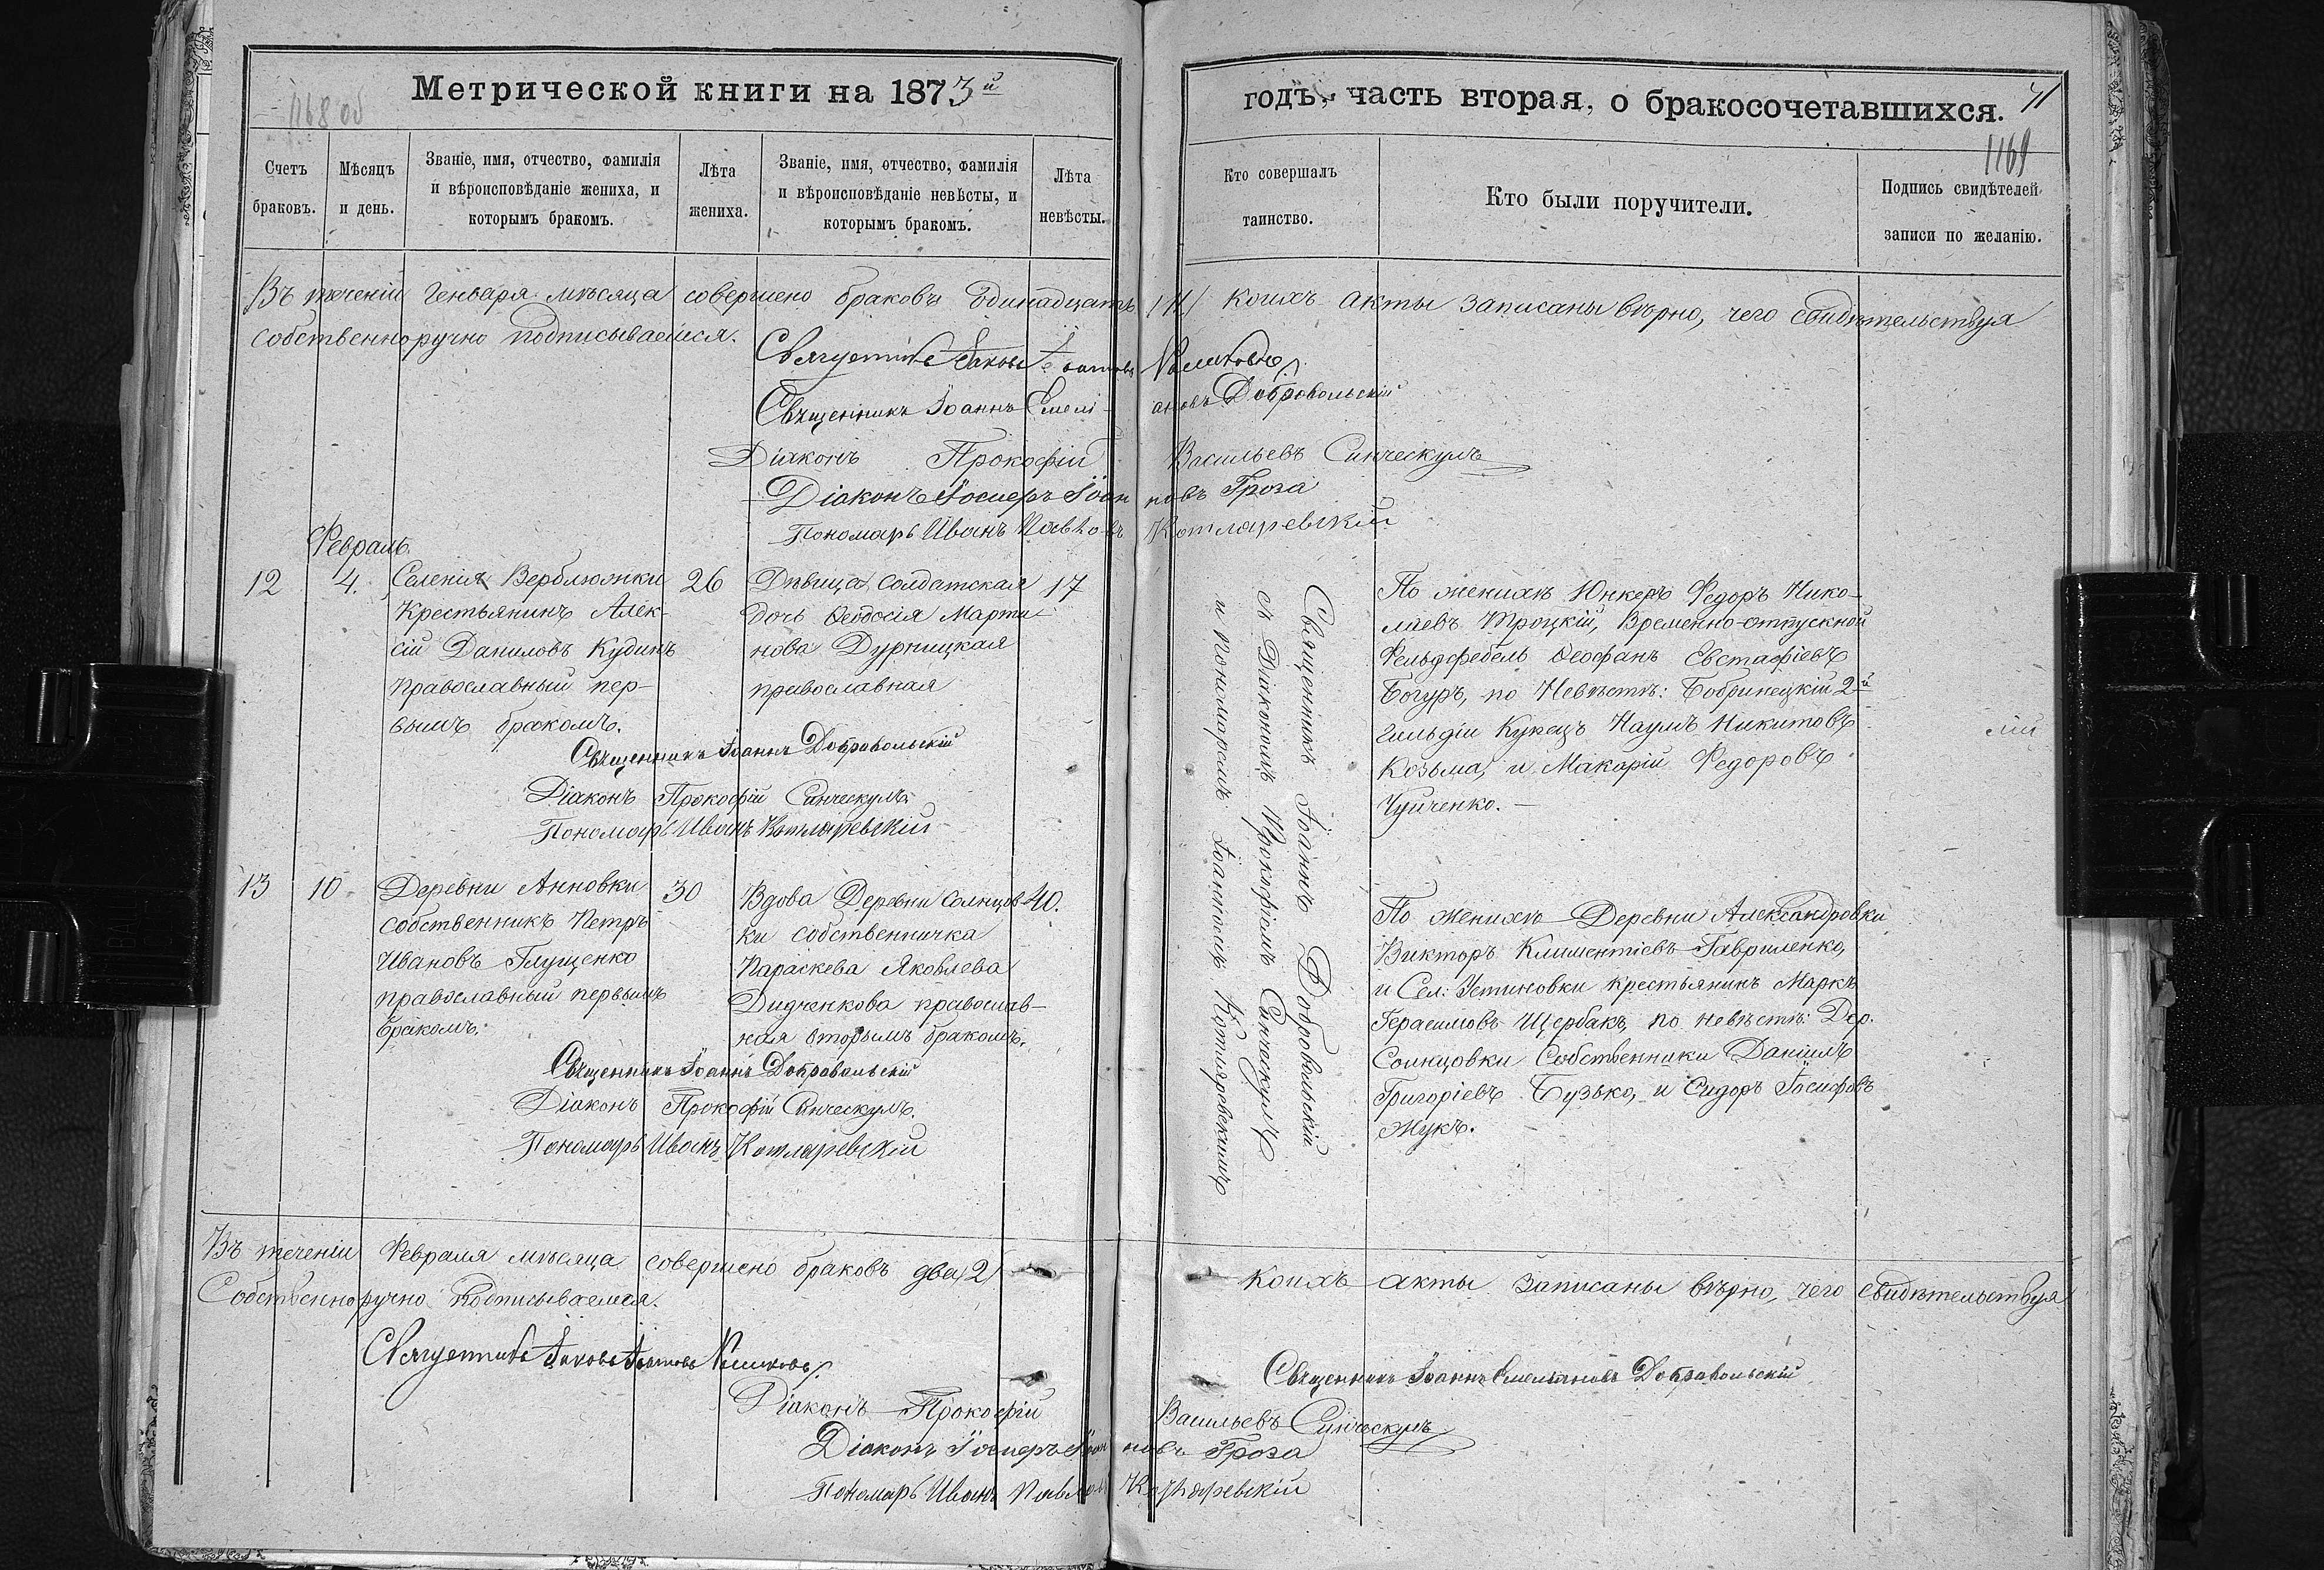 Метрической книги на 1873й
1168 об
Счетъ браковъ.
Мѣсяцъ и день.
Званіе, имя, отчество, фамилія и вѣроисповѣданіе жениха, и которымъ бракомъ.
Лѣта жениха.
Званіе, имя, отчество, фамилія и вѣроисповѣданіе невѣсты, и которымъ бракомъ.
Лѣта невѣсты.
годъ, часть вторая, о бракосочетавшихся.
41
1169
Кто совершалъ таинство.
Кто были поручители.
Подпись свидѣтелей записи по желанію.
Въ теченіи Генваря мѣсяца совершено браковъ Одинадцать /11/ коихъ акты записаны вѣрно, чего свидѣтельствуя
собственноручно подписываемся.
Священникъ Іаковъ
Священникъ Іоаннъ Емеліановъ Добровольскій
Діаконъ Прокофій Васильевъ Синческулъ
Діаконъ Іосифъ Іоанновъ Гроза
Пономарь Иванъ Павловъ Котляревскій
Февраль
12
4.
Селенія Верблюжки
Крестьянинъ Алек-
сій Даниловъ Кудинъ
православный пер-
вымъ бракомъ.
26
Дѣвица, солдатская
дочь Ѳеодосія Марти-
нова Дурницкая
православная
17
Священникъ Іоаннъ Добровольскій
Діаконъ Прокофій Синческулъ
Пономарь Иванъ Котляревскій
Священникъ Іоаннъ Добровольскій
съ Діакономъ Прокофіемъ Синческулъ
и Пономаремъ Іоанномъ Котляревскимъ
По женихѣ Юнкеръ Федоръ Нико-
лаевъ Троцкій, Временно-отпускной
Фельдфебель Ѳеофанъ Евстафіевъ
Богуръ, по Невѣстѣ: Бобринецкій 2й
гильдіи Купецъ Наумъ Никитовъ
Козьма, и Макарій Федоровъ
Чуйченко.
13
10
Деревни Анновки
собственникъ Петръ
Ивановъ Глущенко
православный первымъ
бракомъ.
30
Вдова Деревни Солнцов-
ки собственничка
Параскева Яковлева
Дидченкова православ-
ная вторымъ бракомъ.
40.
Священникъ Іоаннъ Добровольскій
Діаконъ Прокофій Синческулъ.
Пономарь Иванъ Котляревскій
По женихѣ Деревни Александровки
Викторъ Климентіевъ Гавриленко,
и Сел: Устиновки крестьянинъ Маркъ
Герасимовъ Щербакъ, по невѣстѣ: Дер.
Солнцовки Собственники Даніилъ
Григоріевъ Бузько, и Сидоръ Іосифовъ
Жукъ.
Въ теченіи Февраля мѣсяца совершено браковъ два /2/ коихъ акты записаны вѣрно, чего свидѣтельствуя
Собственноручно подписываемся.
Священникъ Іаковъ
Священникъ Іоаннъ Емельяновъ Добровольскій
Діаконъ Прокофій Васильевъ Синческулъ
Діаконъ Іосифъ Іоанновъ Гроза
Пономарь Иванъ Павловъ Котляревскій